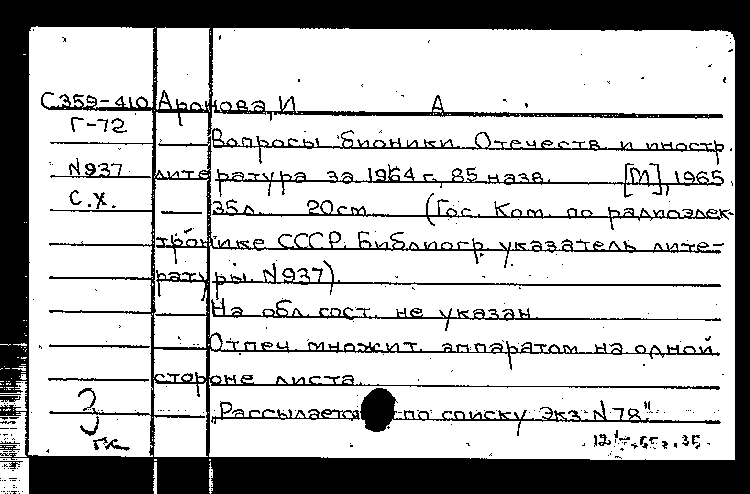 С359-410 Аронова, И А
Г-72
Вопросы бионики. Отечеств и иностр.
N937 литература за 1964 г, 85 назв. [М], 1965.
С.Х. 35л. 20см (Гос. Ком. по радиоэлек-
тронике СССР. Библиогр. указатель лите-
ратуры. N937).
На обл. сост. не указан.
Отпеч. множит. аппаратом на одной
стороне листа.
„Рассылается по списку Экз. N78."
3